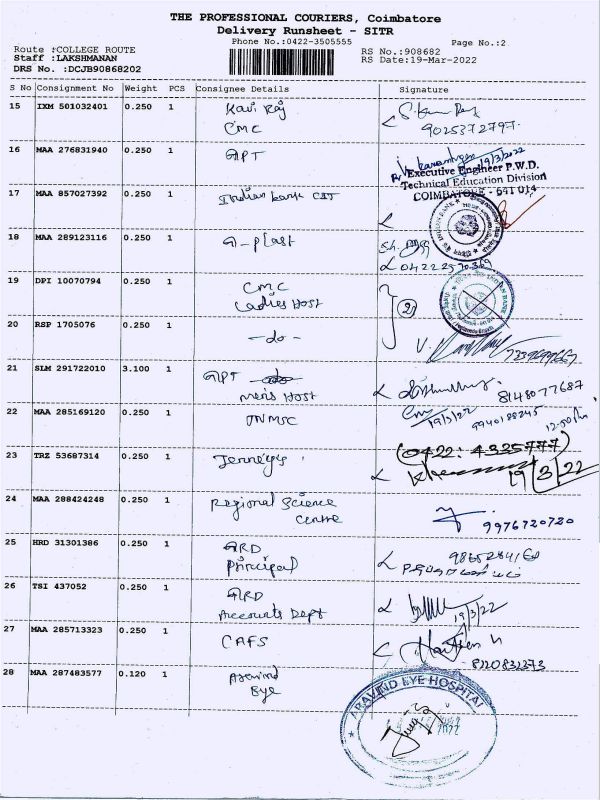 THE PROFESSIONAL COURIERS, Coimbatore
Delivery Runsheet - SITR
Phone No.:0422-3505555
Page No.:2
Route :COLLEGE ROUTE
RS No.:908682
Staff :LAKSHMANAN
RS Date:19-Mar-2022
DRS No. :DCJB90868202
S No Consignment No Weight PCS Consignee Details Signature
15 IXM 501032401 0.250 1 Kavi Raj
CMC
9025372797
16 MAA 276831940 0.250 1 GPT
19/3/2022
Executive Engineer P.W.D.
Technical Education Division
COIMBATORE - 641 014
17 MAA 857027392 0.250 1 Indian bank CIT
18 MAA 289123116 0.250 1 G-plast
19 DPI 10070794 0.250 1 CMC
Ladies Host
2
20 RSP 1705076 0.250 1 -do-
21 SLM 291722010 3.100 1 GPT
mens Host
8148077687
19/3/22
22 MAA 285169120 0.250 1 TNMSC
9940188245
(0422: 4335777)
23 TRZ 53687314 0.250 1
19/3/22
24 MAA 288424248 0.250 1 Regional Science
Centre
9976720720
25 HRD 31301386 0.250 1 GRD
Principal
26 TSI 437052 0.250 1 GRD
Accounts Dept
19/3/22
27 MAA 285713323 0.250 1 CAFS
8120832273
28 MAA 287483577 0.120 1 Aravind
Eye
ARAVIND EYE HOSPITAL
2022